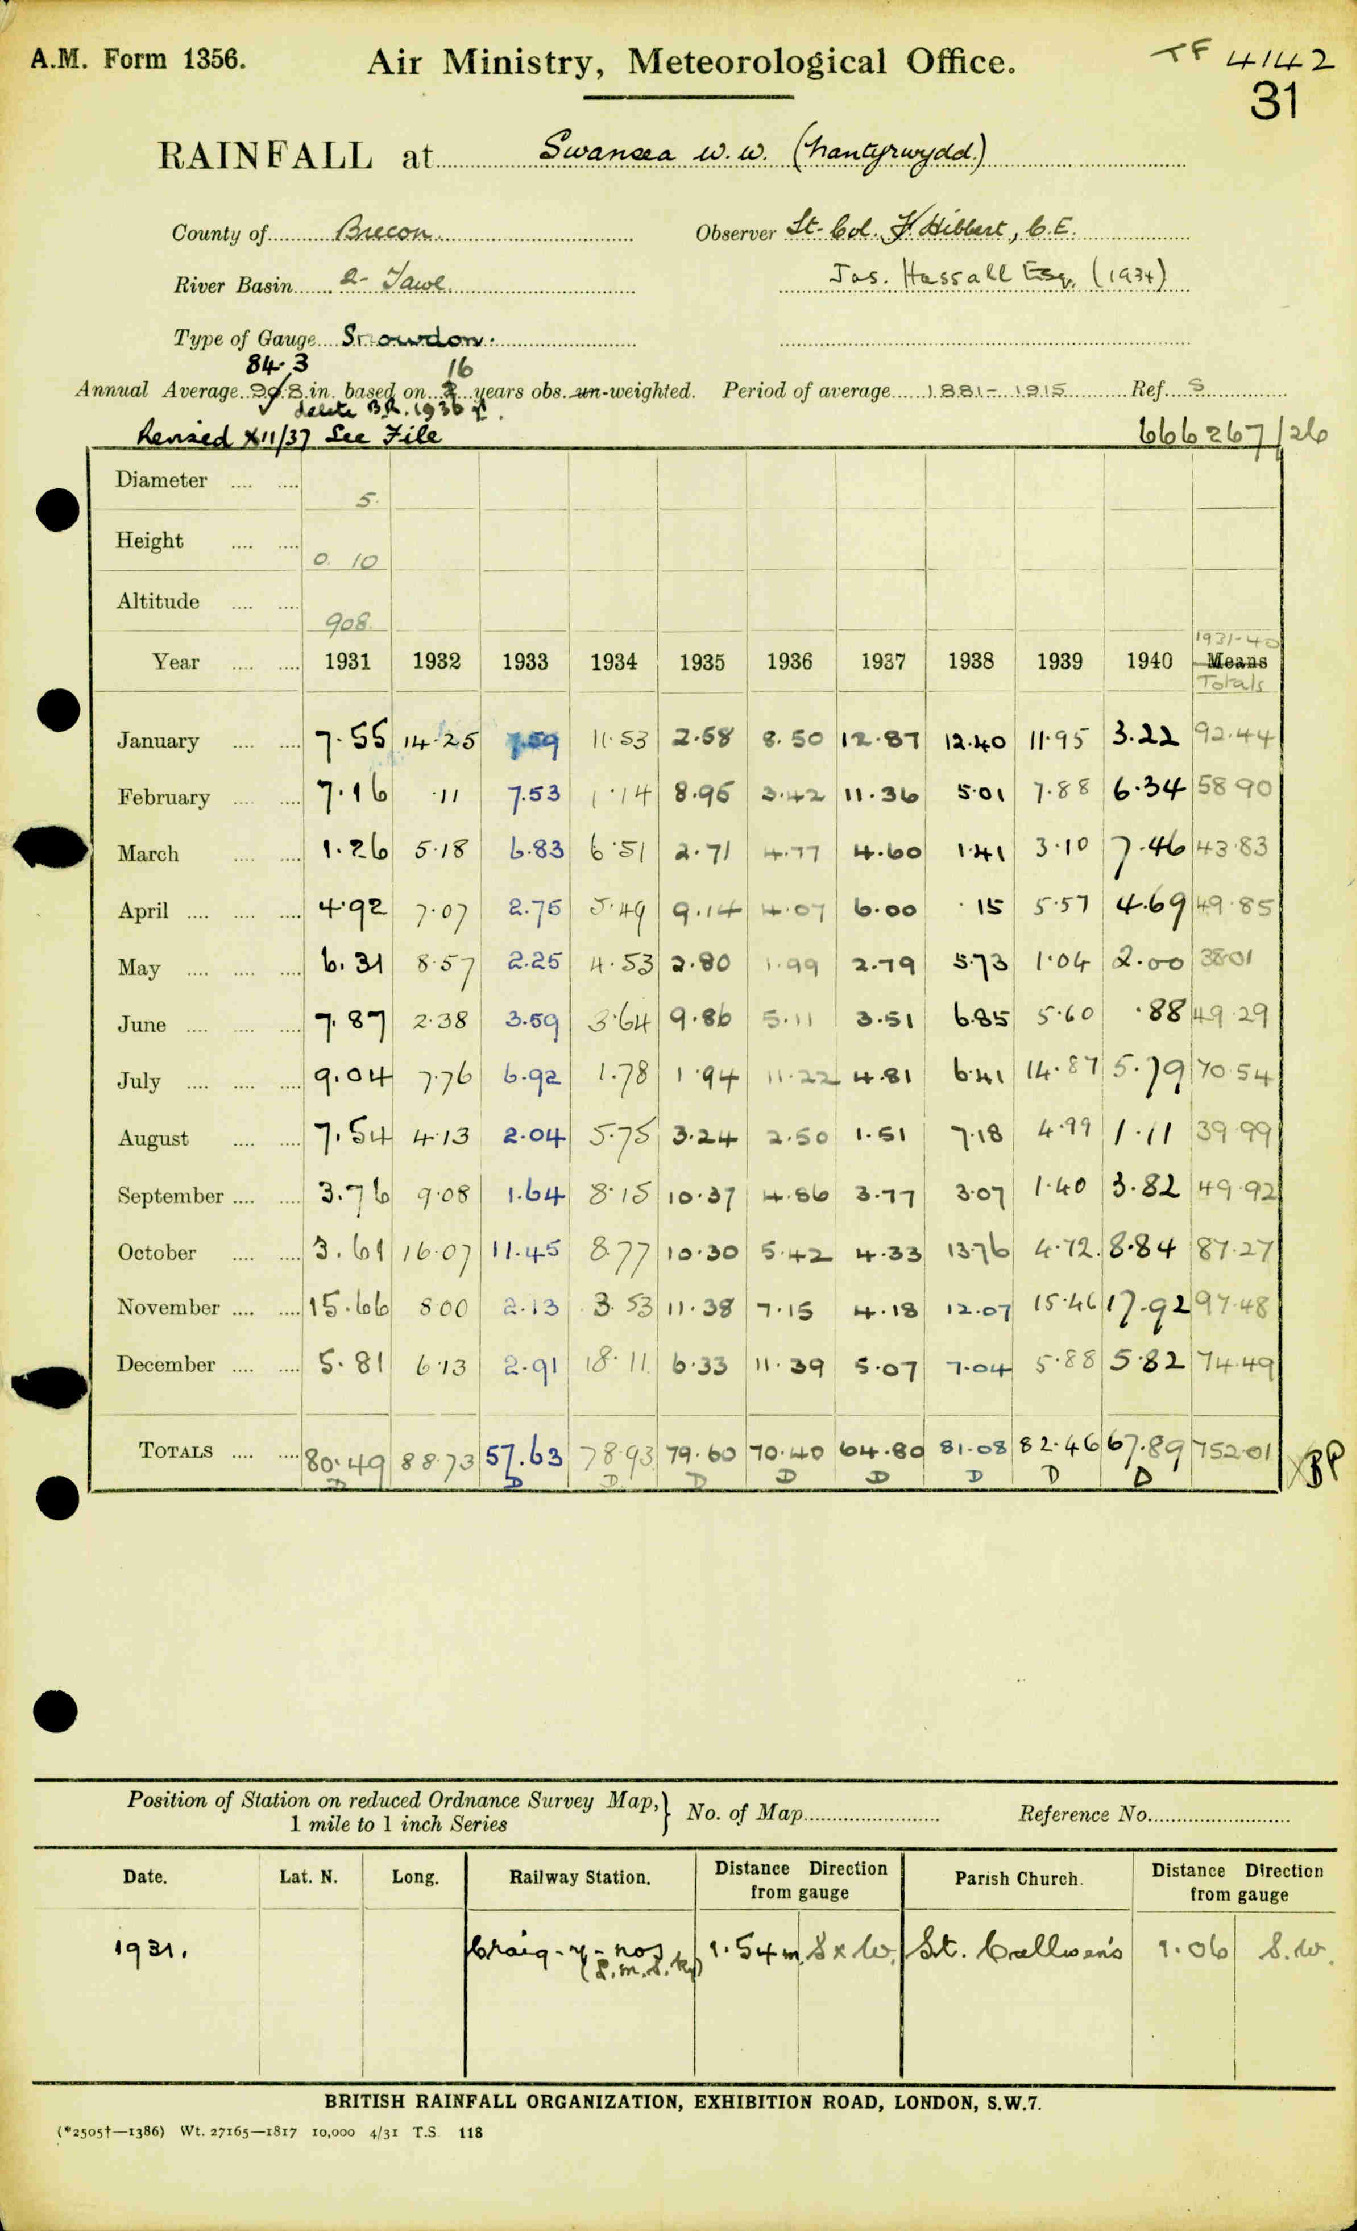 A.M. Form 1356. Air Ministry, Meteorological Office. TF 4142
31
RAINFALL at Swansea W.W. (Nantyrwydd)
County of Brecon. Observer Lt-Col. F. Hibbert, C.E.
River Basin 2- Tawe. Jas. Hassall Esq. (1934)
Type of Gauge Snowdon.
84.3 16
Annual Average 90.8 in. based on 2 years obs. un-weighted. Period of average 1881-1915 Ref. S
delete B.R. 1936
Revised XII/37 See File 666267/26
Diameter 5.
Height 0. 10
Altitude 908.
1931-40
Year 1931 1932 1933 1934 1935 1936 1937 1938 1939 1940 Means
Totals
January 7.55 14.25 7.59 11.53 2.58 8.50 12.87 12.40 11.95 3.22 92.44
February 7.16 .11 7.53 1.14 8.95 3.42 11.36 5.01 7.88 6.34 58.90
March 1.26 5.18 6.83 6.51 2.71 4.77 4.60 1.41 3.10 7.46 43.83
April 4.92 7.07 2.75 5.49 9.14 4.07 6.00 .15 5.57 4.69 49.85
May 6.31 8.57 2.25 4.53 2.80 1.99 2.79 5.73 1.04 2.00 38.01
June 7.87 2.38 3.59 3.64 9.86 5.11 3.51 6.85 5.60 .88 49.29
July 9.04 7.76 6.92 1.78 1.94 11.22 4.81 6.41 14.87 5.79 70.54
August 7.54 4.13 2.04 5.75 3.24 2.50 1.51 7.18 4.99 1.11 39.99
September 3.76 9.08 1.64 8.15 10.37 4.86 3.77 3.07 1.40 3.82 49.92
October 3.61 16.07 11.45 8.77 10.30 5.42 4.33 13.76 4.72 8.84 87.27
November 15.66 8.00 2.13 3.53 11.38 7.15 4.18 12.07 15.46 17.92 97.48
December 5.81 6.13 2.91 18.11 6.33 11.39 5.07 7.04 5.88 5.82 74.49
TOTALS 80.49 88.73 57.63 78.93 79.60 70.40 64.80 81.08 82.46 67.89 752.01 XBP
D D D D D D D D D
Position of Station on reduced Ordnance Survey Map, 1 mile to 1 inch Series No. of Map Reference No.
Date. Lat. N. Long. Railway Station. Distance Direction from gauge Parish Church. Distance Direction from gauge
1931. Craig-y-nos 1.54 m. S x W. St. Callwen's 1.06 S.W.
(L.M.S. Ry)
BRITISH RAINFALL ORGANIZATION, EXHIBITION ROAD, LONDON, S.W.7.
(*2505†—1386) Wt. 27165—1817 10,000 4/31 T.S. 118